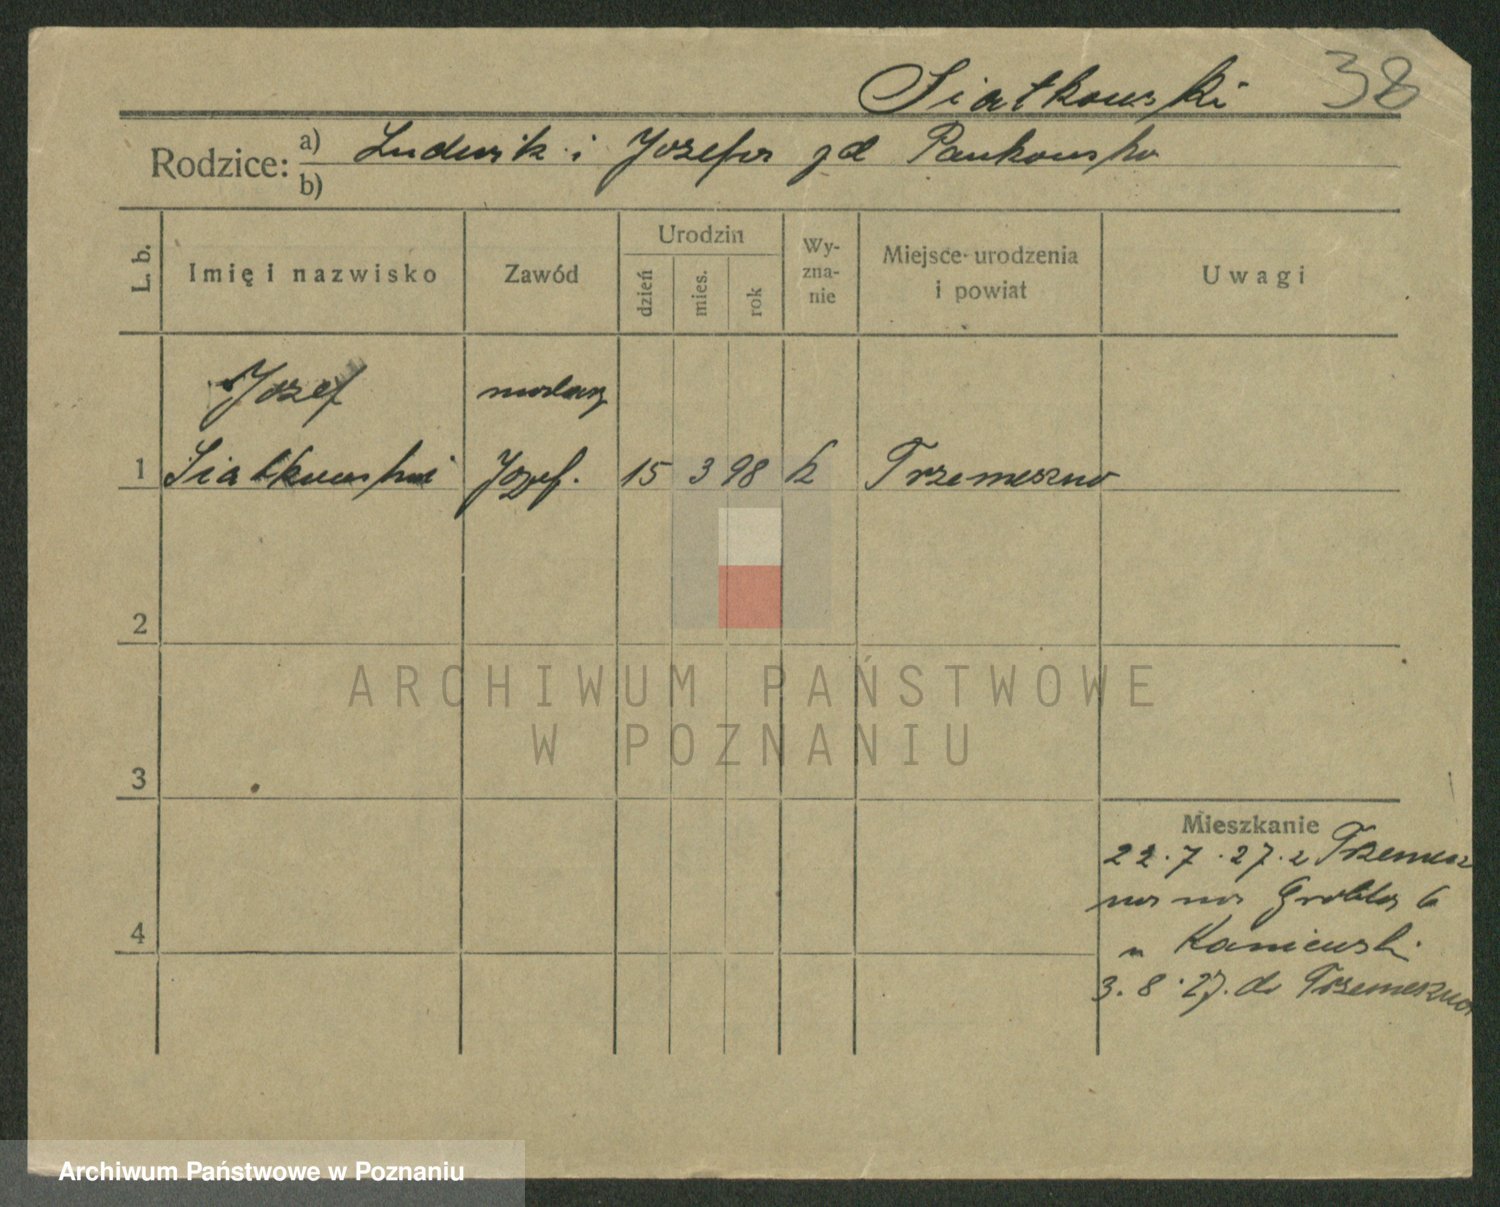 Siatkowski 38
Rodzice: a) Ludwik i Józefa zd Pankowska
b)
L. b. Imię i nazwisko Zawód Urodzin dzień mies. rok Wyznanie Miejsce urodzenia i powiat Uwagi
Józef malarz
1 Siatkowski Józef. 15 3 98 k Trzemeszno
2
ARCHIWUM PAŃSTWOWE
W POZNANIU
3
Mieszkanie
22.7.27. z Trzemesz
na na Grobla 6
4
u Kaniewski
3.8.27. do Trzemeszna
Archiwum Państwowe w Poznaniu